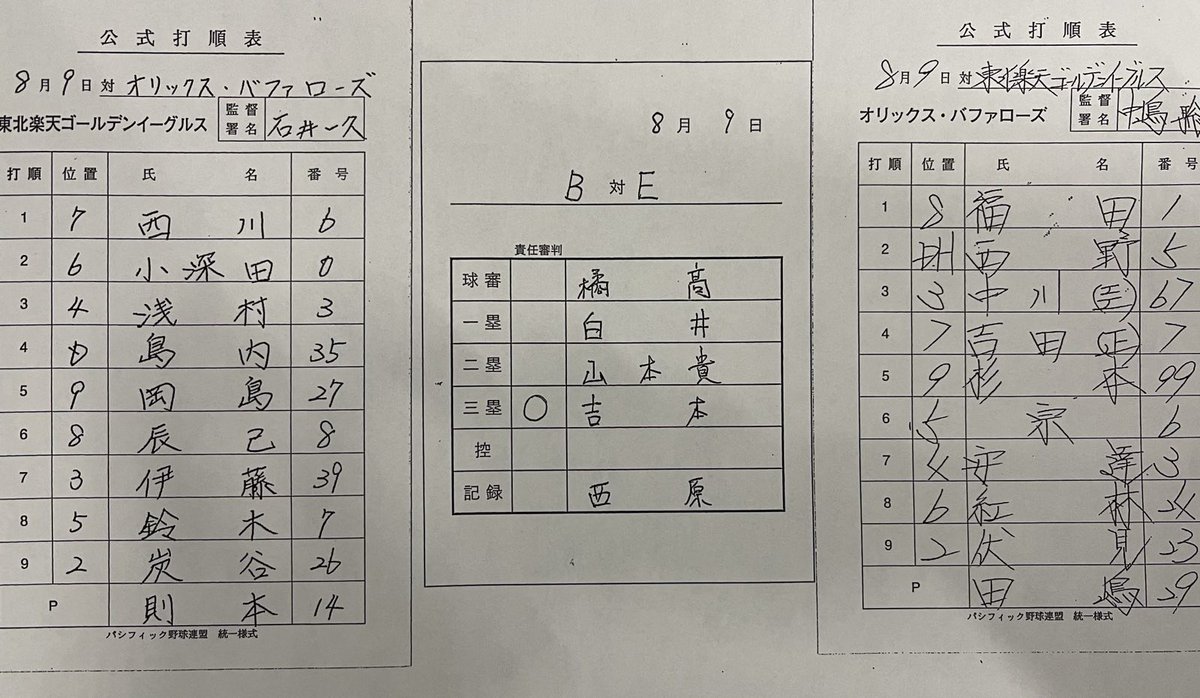 公式打順表
8月9日対 オリックス・バファローズ
東北楽天ゴールデンイーグルス 監督署名 石井一久
打順 位置 氏名 番号
1 7 西川 6
2 6 小深田 0
3 4 浅村 3
4 D 島内 35
5 9 岡島 27
6 8 辰己 8
7 3 伊藤 39
8 5 鈴木 7
9 2 炭谷 26
P 則本 14
パシフィック野球連盟 統一様式
8月9日
B対E
責任審判
球審 橘高
一塁 白井
二塁 山本貴
三塁 ○ 吉本
控
記録 西原
公式打順表
8月9日対 東北楽天ゴールデンイーグルス
オリックス・バファローズ 監督署名 中嶋
打順 位置 氏名 番号
1 8 福田 1
2 DH 西野 5
3 3 中川(圭) 67
4 7 吉田(正) 7
5 9 杉本 99
6 5 宗 6
7 4 安達 3
8 6 紅林 24
9 2 伏見 23
P 田嶋 29
パシフィック野球連盟 統一様式